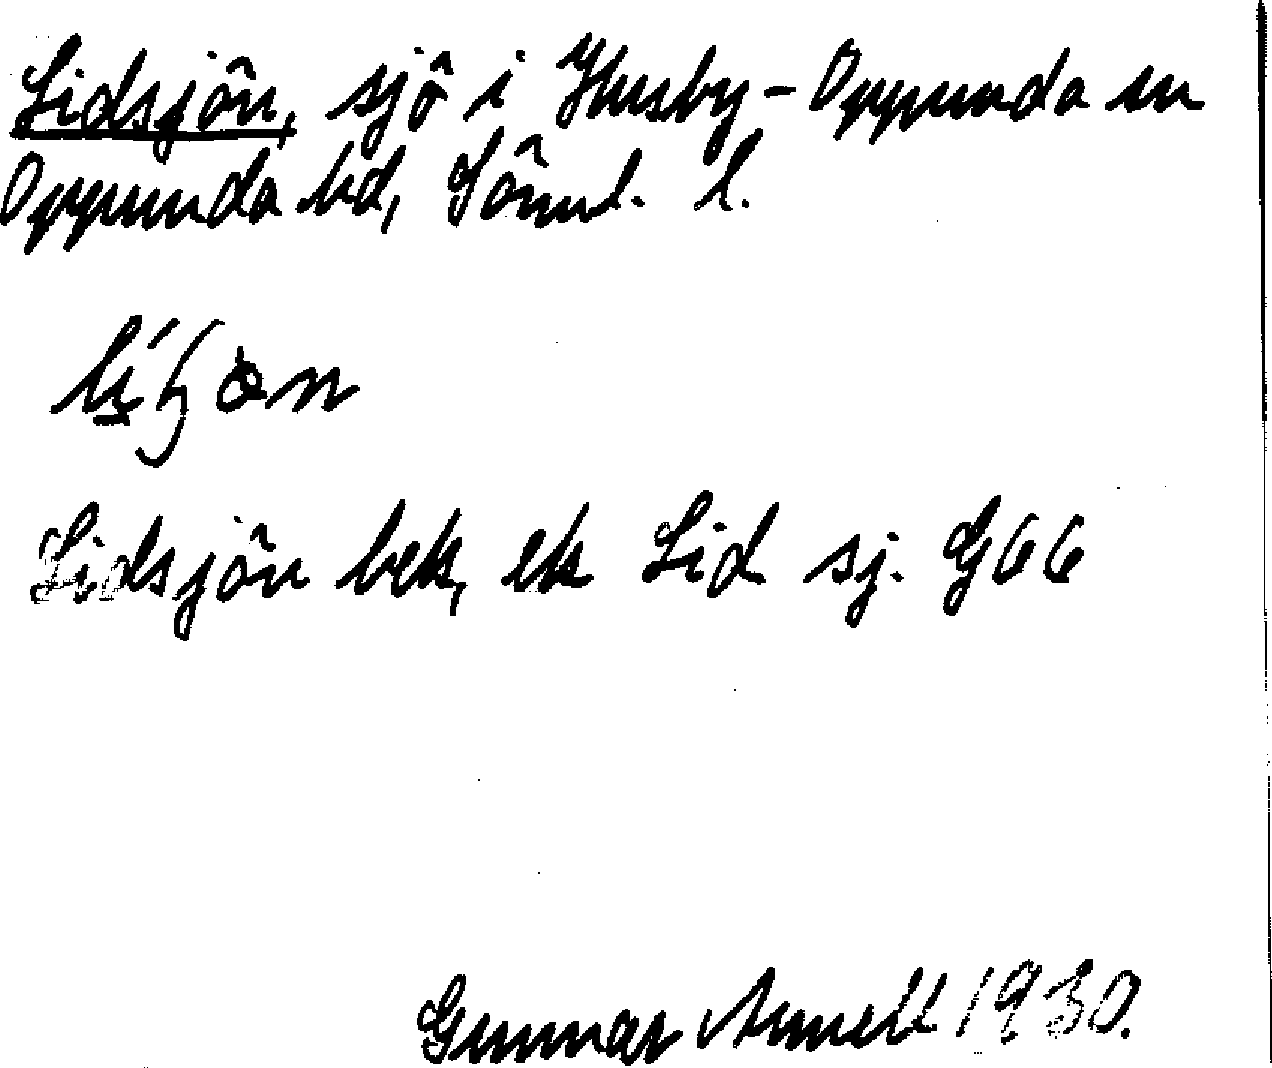 Lidsjön, sjö i Husby-Oppunda sn
Oppunda hd, Söml. l.
Lidsjön bek, ek Lid sj. G66
Gunnar Arnell 1930.